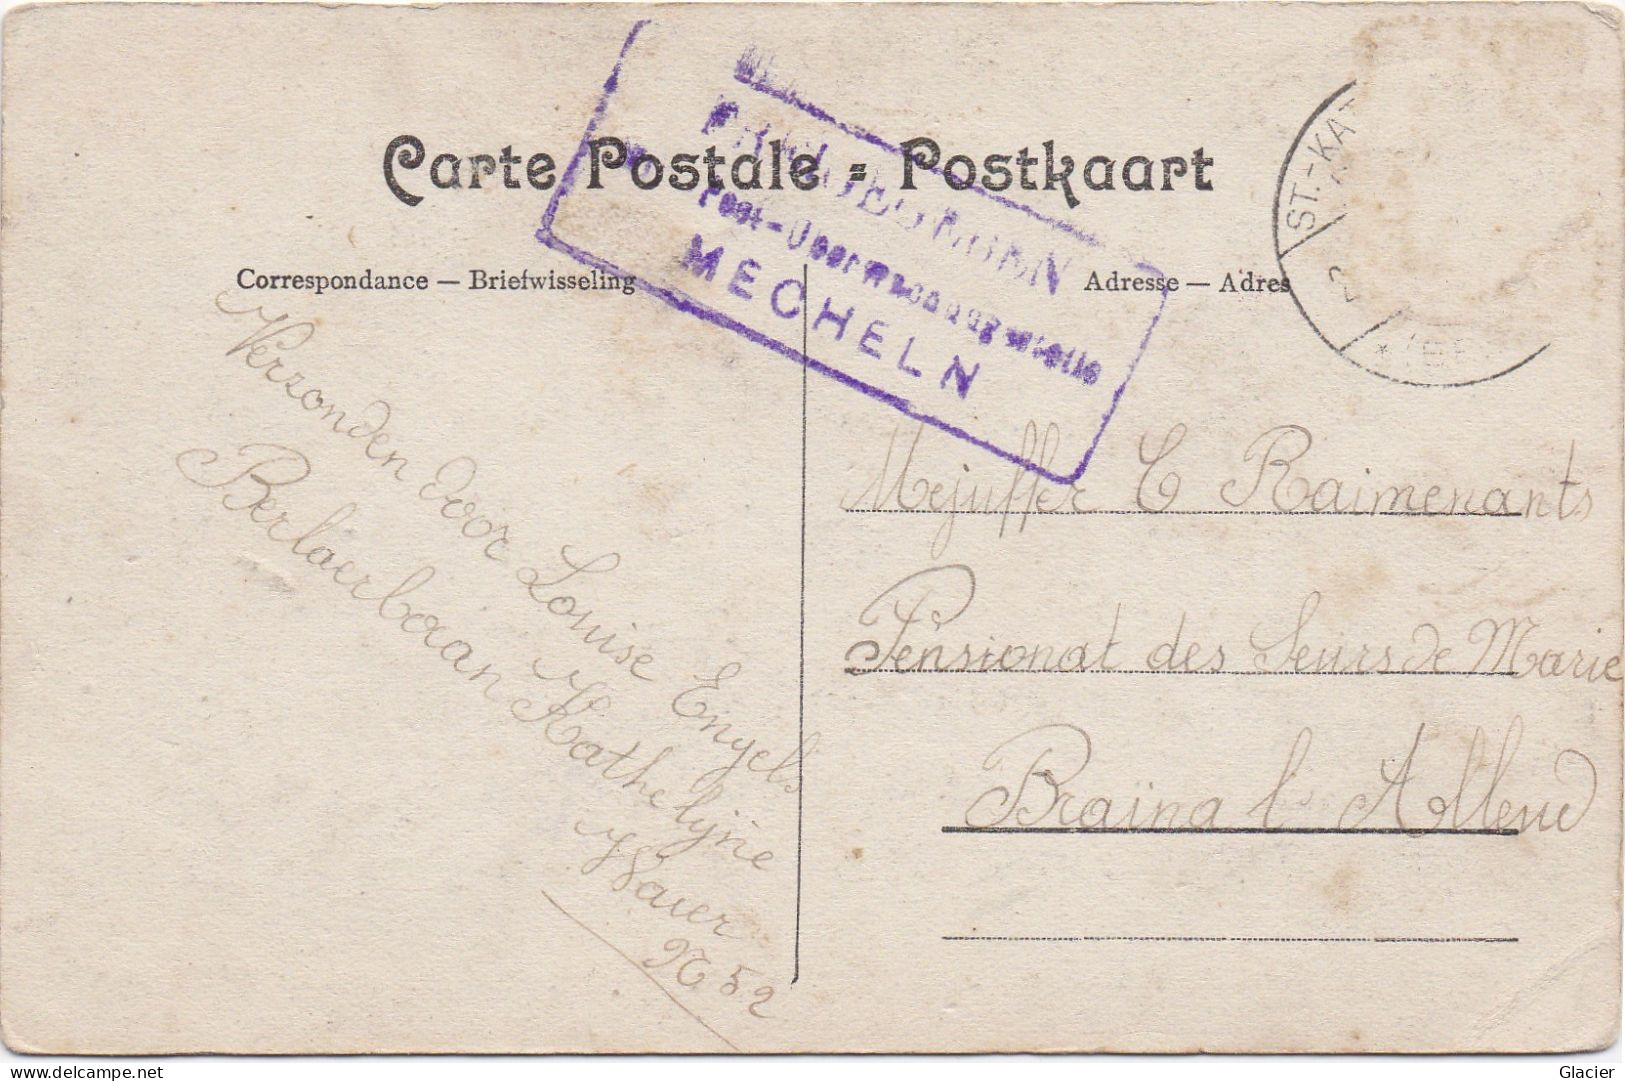 Carte Postale - Postkaart
ST.-KAT
2
Post-Überwachungsstelle
MECHELN
Correspondance — Briefwisseling
Adresse — Adres
Verzonden door Louise Engels
Berlaerbaan Kathelijne
Waver
N 52
Mejuffer C Raimenants
Pensionat des Seurs de Marie
Braina l' Alleud
delcampe.net
Glacier